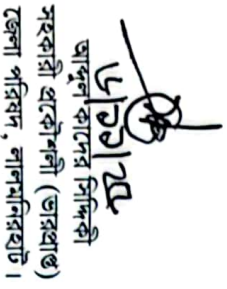 আব্দুল কাদের সিদ্দিকী
সহকারী প্রকৌশলী (ভারপ্রাপ্ত)
জেলা পরিষদ, লালমনিরহাট।